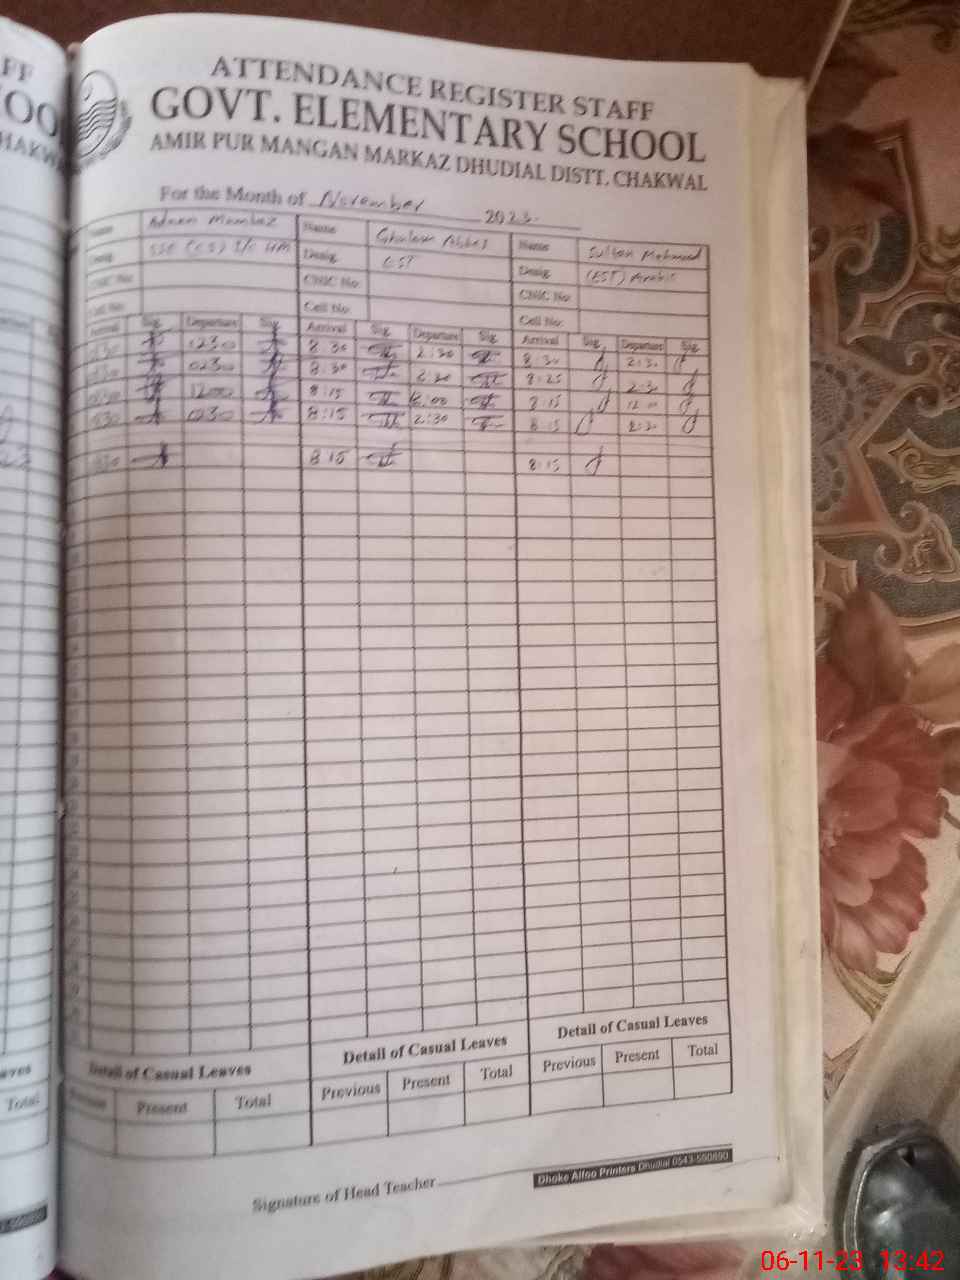 FF
OO
HAKW
ATTENDANCE REGISTER STAFF
GOVT. ELEMENTARY SCHOOL
AMIR PUR MANGAN MARKAZ DHUDIAL DISTT. CHAKWAL
For the Month of November 2023.
Name Adnan Mumtaz Name Ghulam Abbas Name Sultan Mehmood
Desig. SSE (CS) I/C HM Desig. EST Desig. (EST) Arabic
CNIC No CNIC No CNIC No
Cell No. Cell No. Cell No.
Arrival Sig. Departure Sig. Arrival Sig. Departure Sig. Arrival Sig. Departure Sig.
0230 8:30 2:30 8:30 2:30
0230 8:30 2:30 8:25 2:30
1200 8:15 8:15 12:00
0230 8:15 2:30 8:15 2:30
8:15 8:15
Detail of Casual Leaves Detail of Casual Leaves Detail of Casual Leaves
Previous Present Total Previous Present Total Previous Present Total
aves
Total
Signature of Head Teacher
Dhoke Alfoo Printers Dhudial 0543-590890
06-11-23 13:42